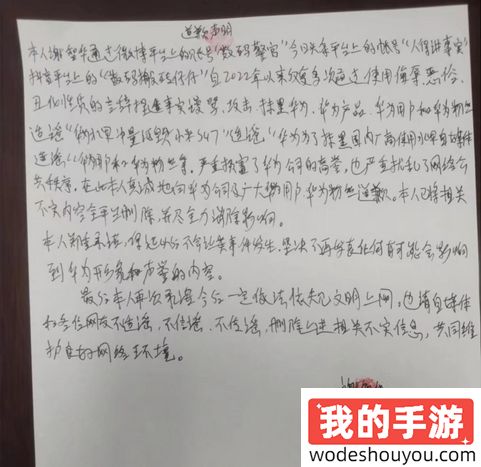 道歉声明
本人谢智华通过微博平台上的账号“数码警官”今日头条平台上的帐号“人得讲事实”
抖音平台上的“数码搬砖仔仔”自2022年以来多次通过使用侮辱恶俗、
丑化性质的言语捏造事实误导、攻击、抹黑华为、华为产品、华为用户和华为粉丝
造谣“ 水军冲量诋毁小米SU7”造谣“华为为了抹黑国内厂商使用水军自媒体
造谣 用户和华为粉丝等。严重损害了华为公司的商誉,也严重扰乱了网络公
共秩序。在此本人真诚地向华为公司及广大华为用户、华为粉丝道歉。本人已将相关
不实内容全平台删除,并尽全力消除影响。
本人郑重承诺,保证以后不会让类事件发生,坚决不再发表任何有可能会影响
到华为形象和声誉的内容。
最后本人再次承诺今后一定依法依规文明上网,也请自媒体
和各位网友不造谣、不信谣、不传谣、删除上述相关不实信息,共同维
护良好网络环境。
我的手游
wodeshouyou.com